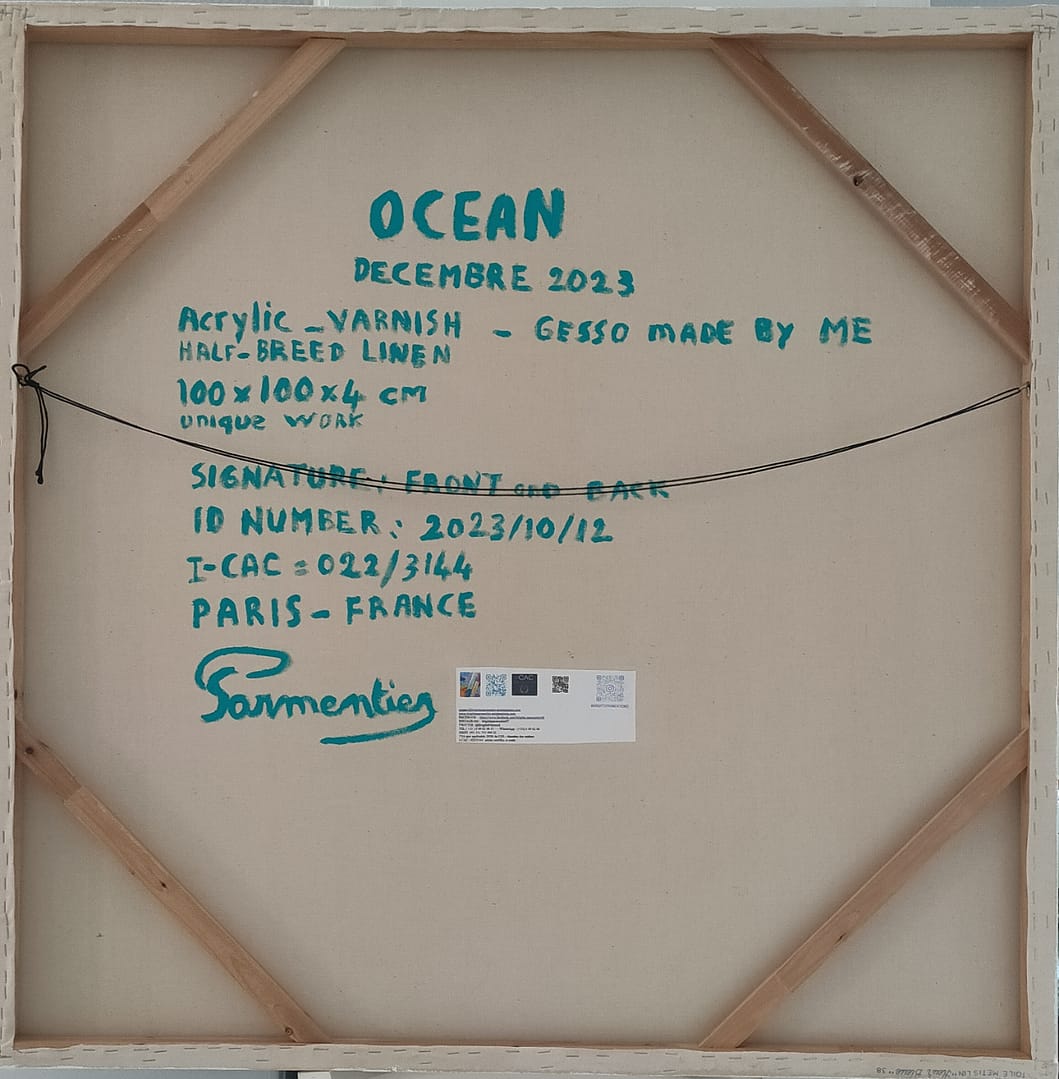 OCEAN
DECEMBRE 2023
Acrylic - VARNISH - GESSO MADE BY ME
HALF-BREED LINEN
100 x 100 x 4 cm
unique WORK
SIGNATURE: FRONT and BACK
ID NUMBER: 2023/10/12
I-CAC = 022/3144
PARIS - FRANCE
Parmentier
CAC
TOILE METIS LIN